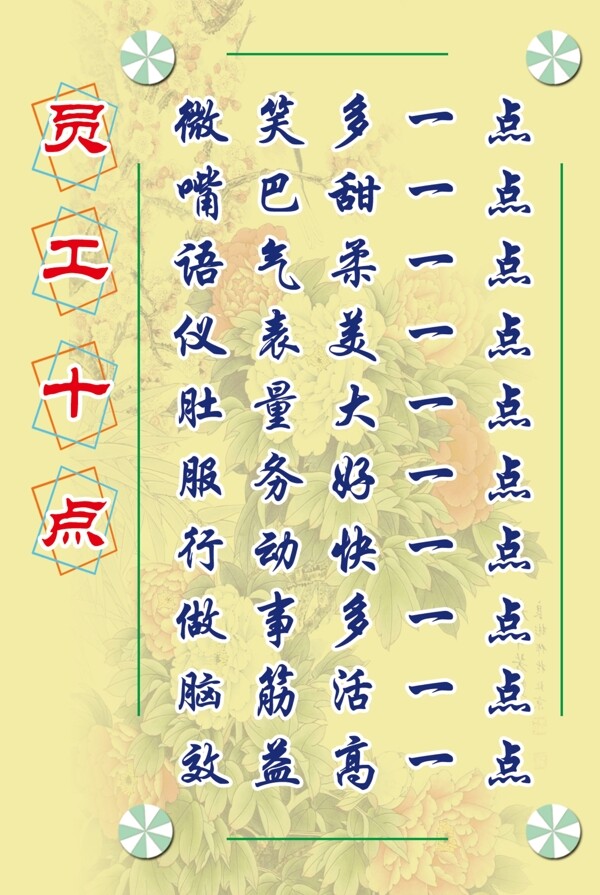 员工十点
微笑多一点
嘴巴甜一点
语气柔一点
仪表美一点
肚量大一点
服务好一点
行动快一点
做事多一点
脑筋活一点
效益高一点